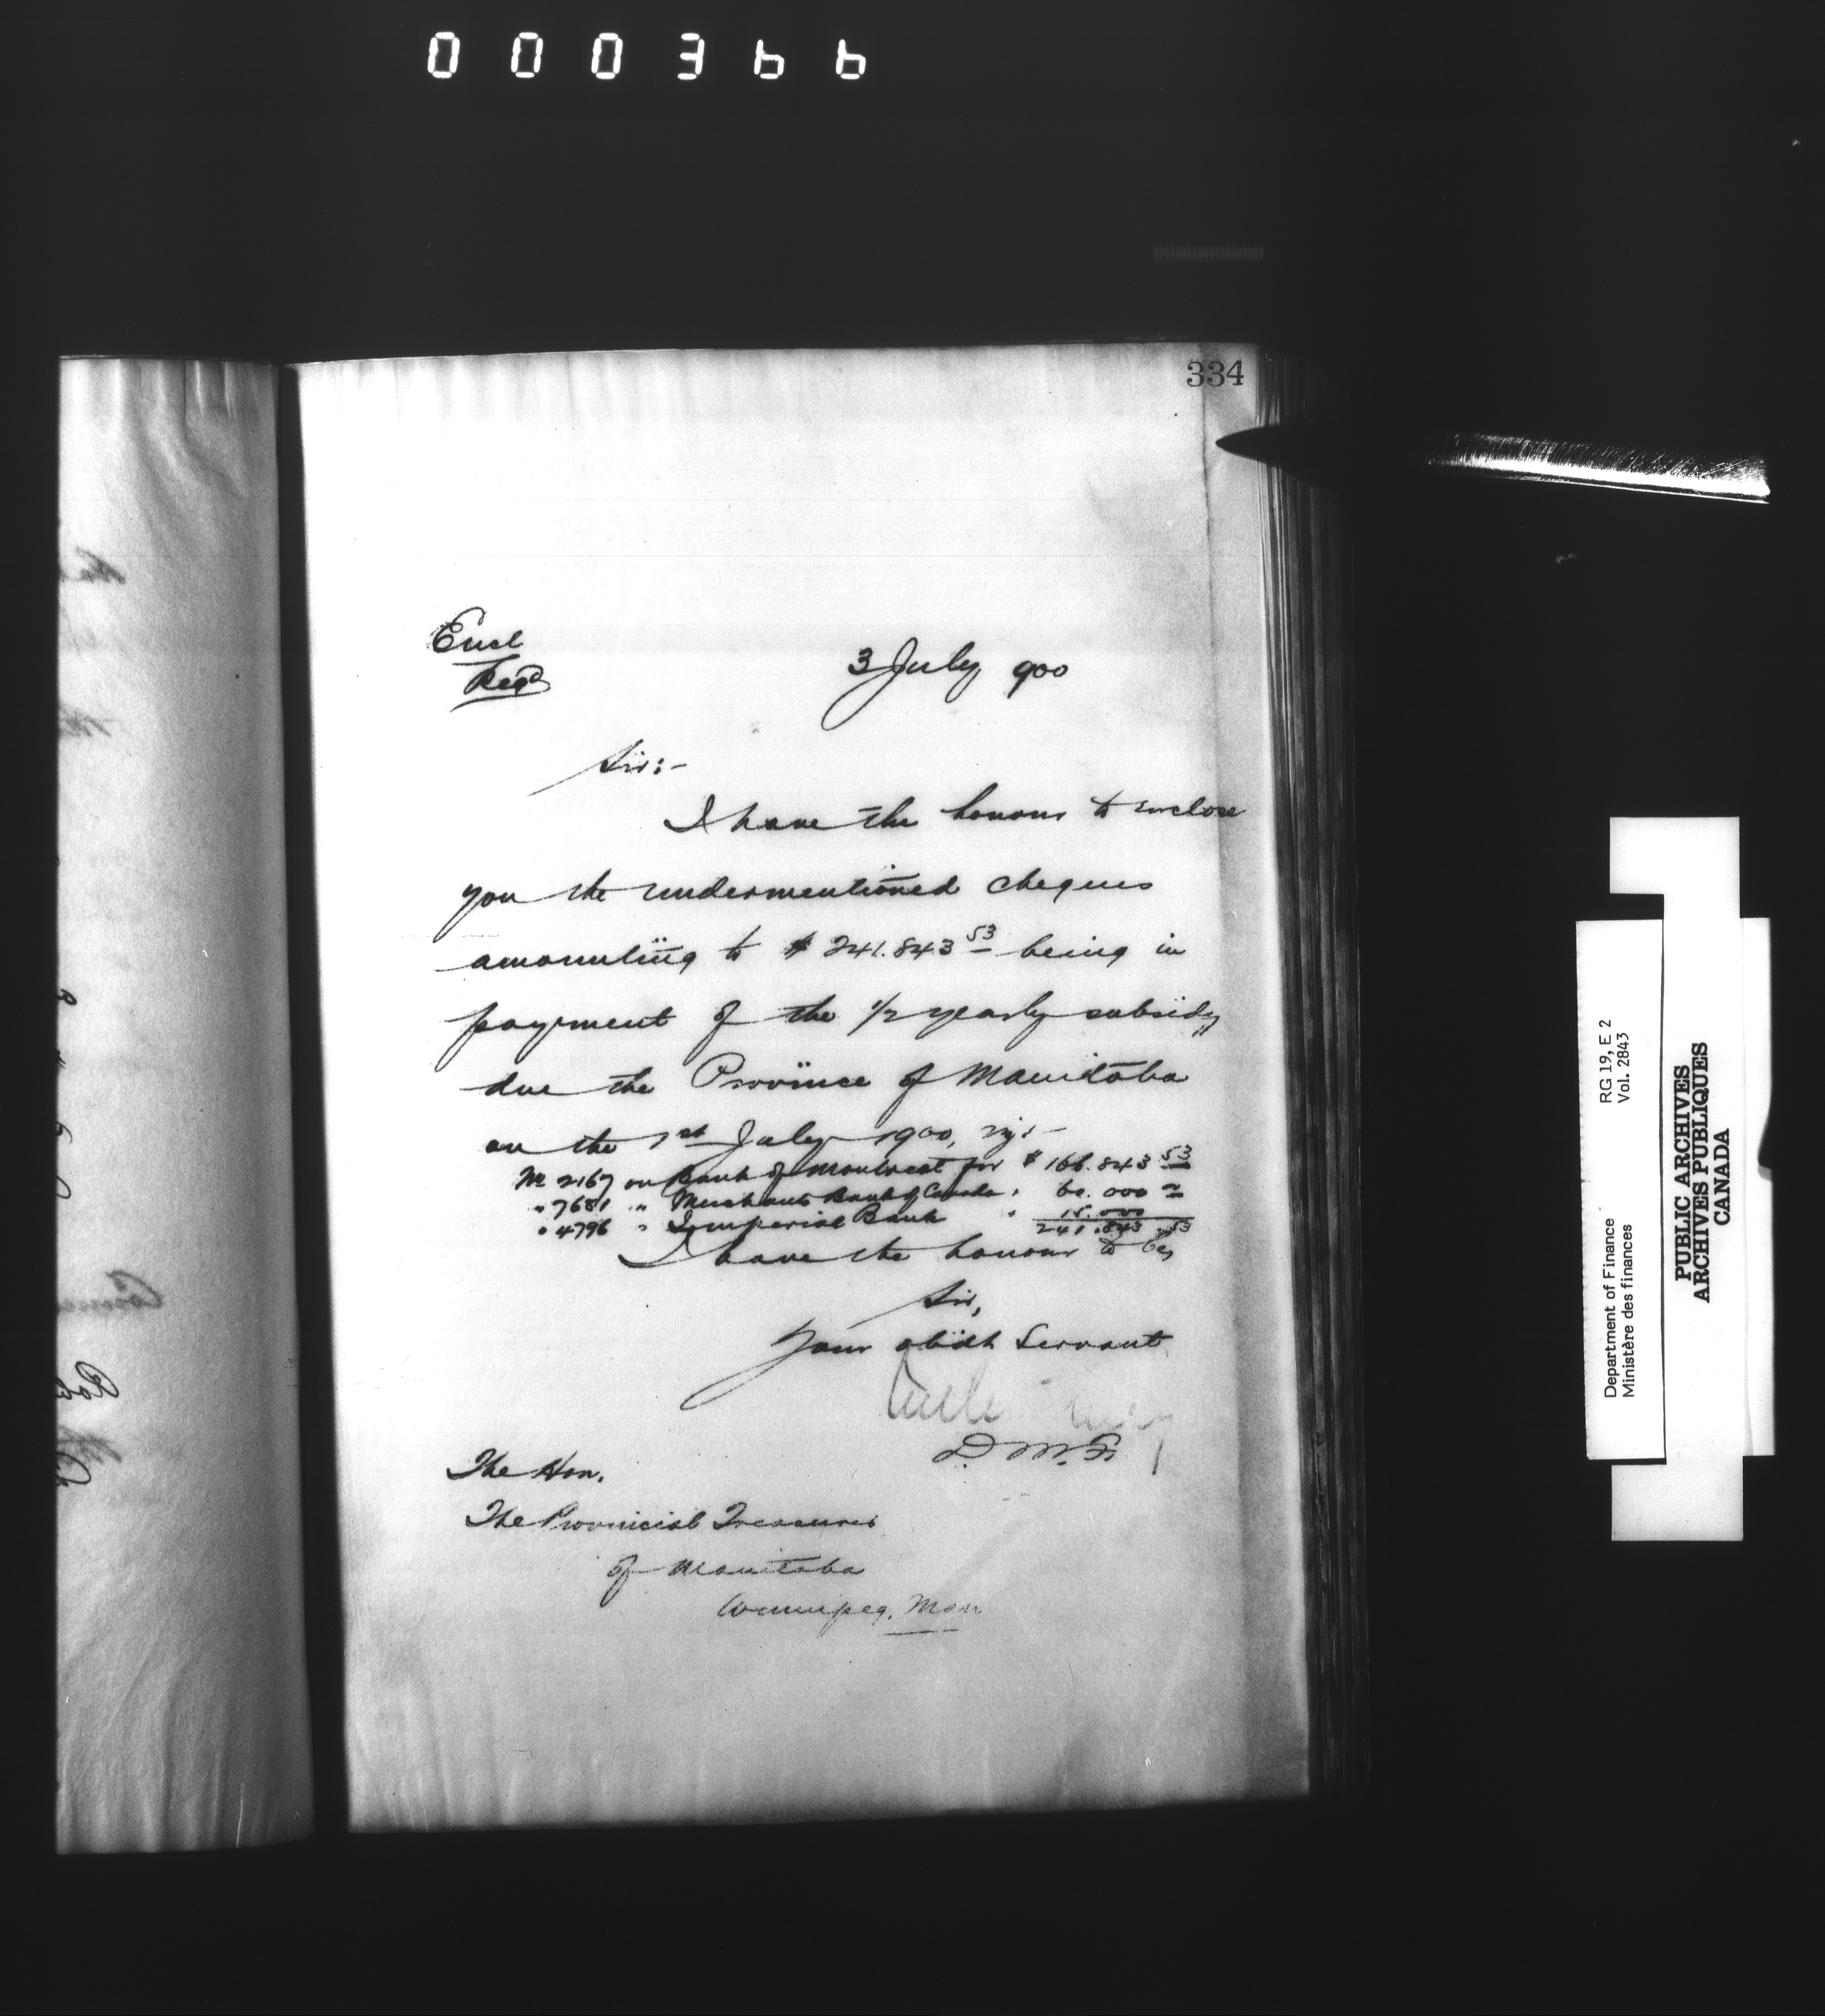 000366
334
Encl
Regd
3 July 900
Sir:-
I have the honour to enclose
you the undermentioned cheques
amounting to $ 241.843 53 being in
payment of the 1/2 yearly subsidy
due the Province of Manitoba
on the 1st July 1900, viz:-
No 2167 on Bank of Montreal for $ 166.843 53
" 7681 " Merchants Bank of Canada " 60.000
" 4796 " Imperial Bank " 15.000
241.843.53
I have the honour to be,
Sir,
Your obedt Servant
D.M.F.
The Hon.
The Provincial Treasurer
of Manitoba
Winnipeg. Man
Department of Finance RG 19, E 2
Ministère des finances Vol. 2843
PUBLIC ARCHIVES
ARCHIVES PUBLIQUES
CANADA